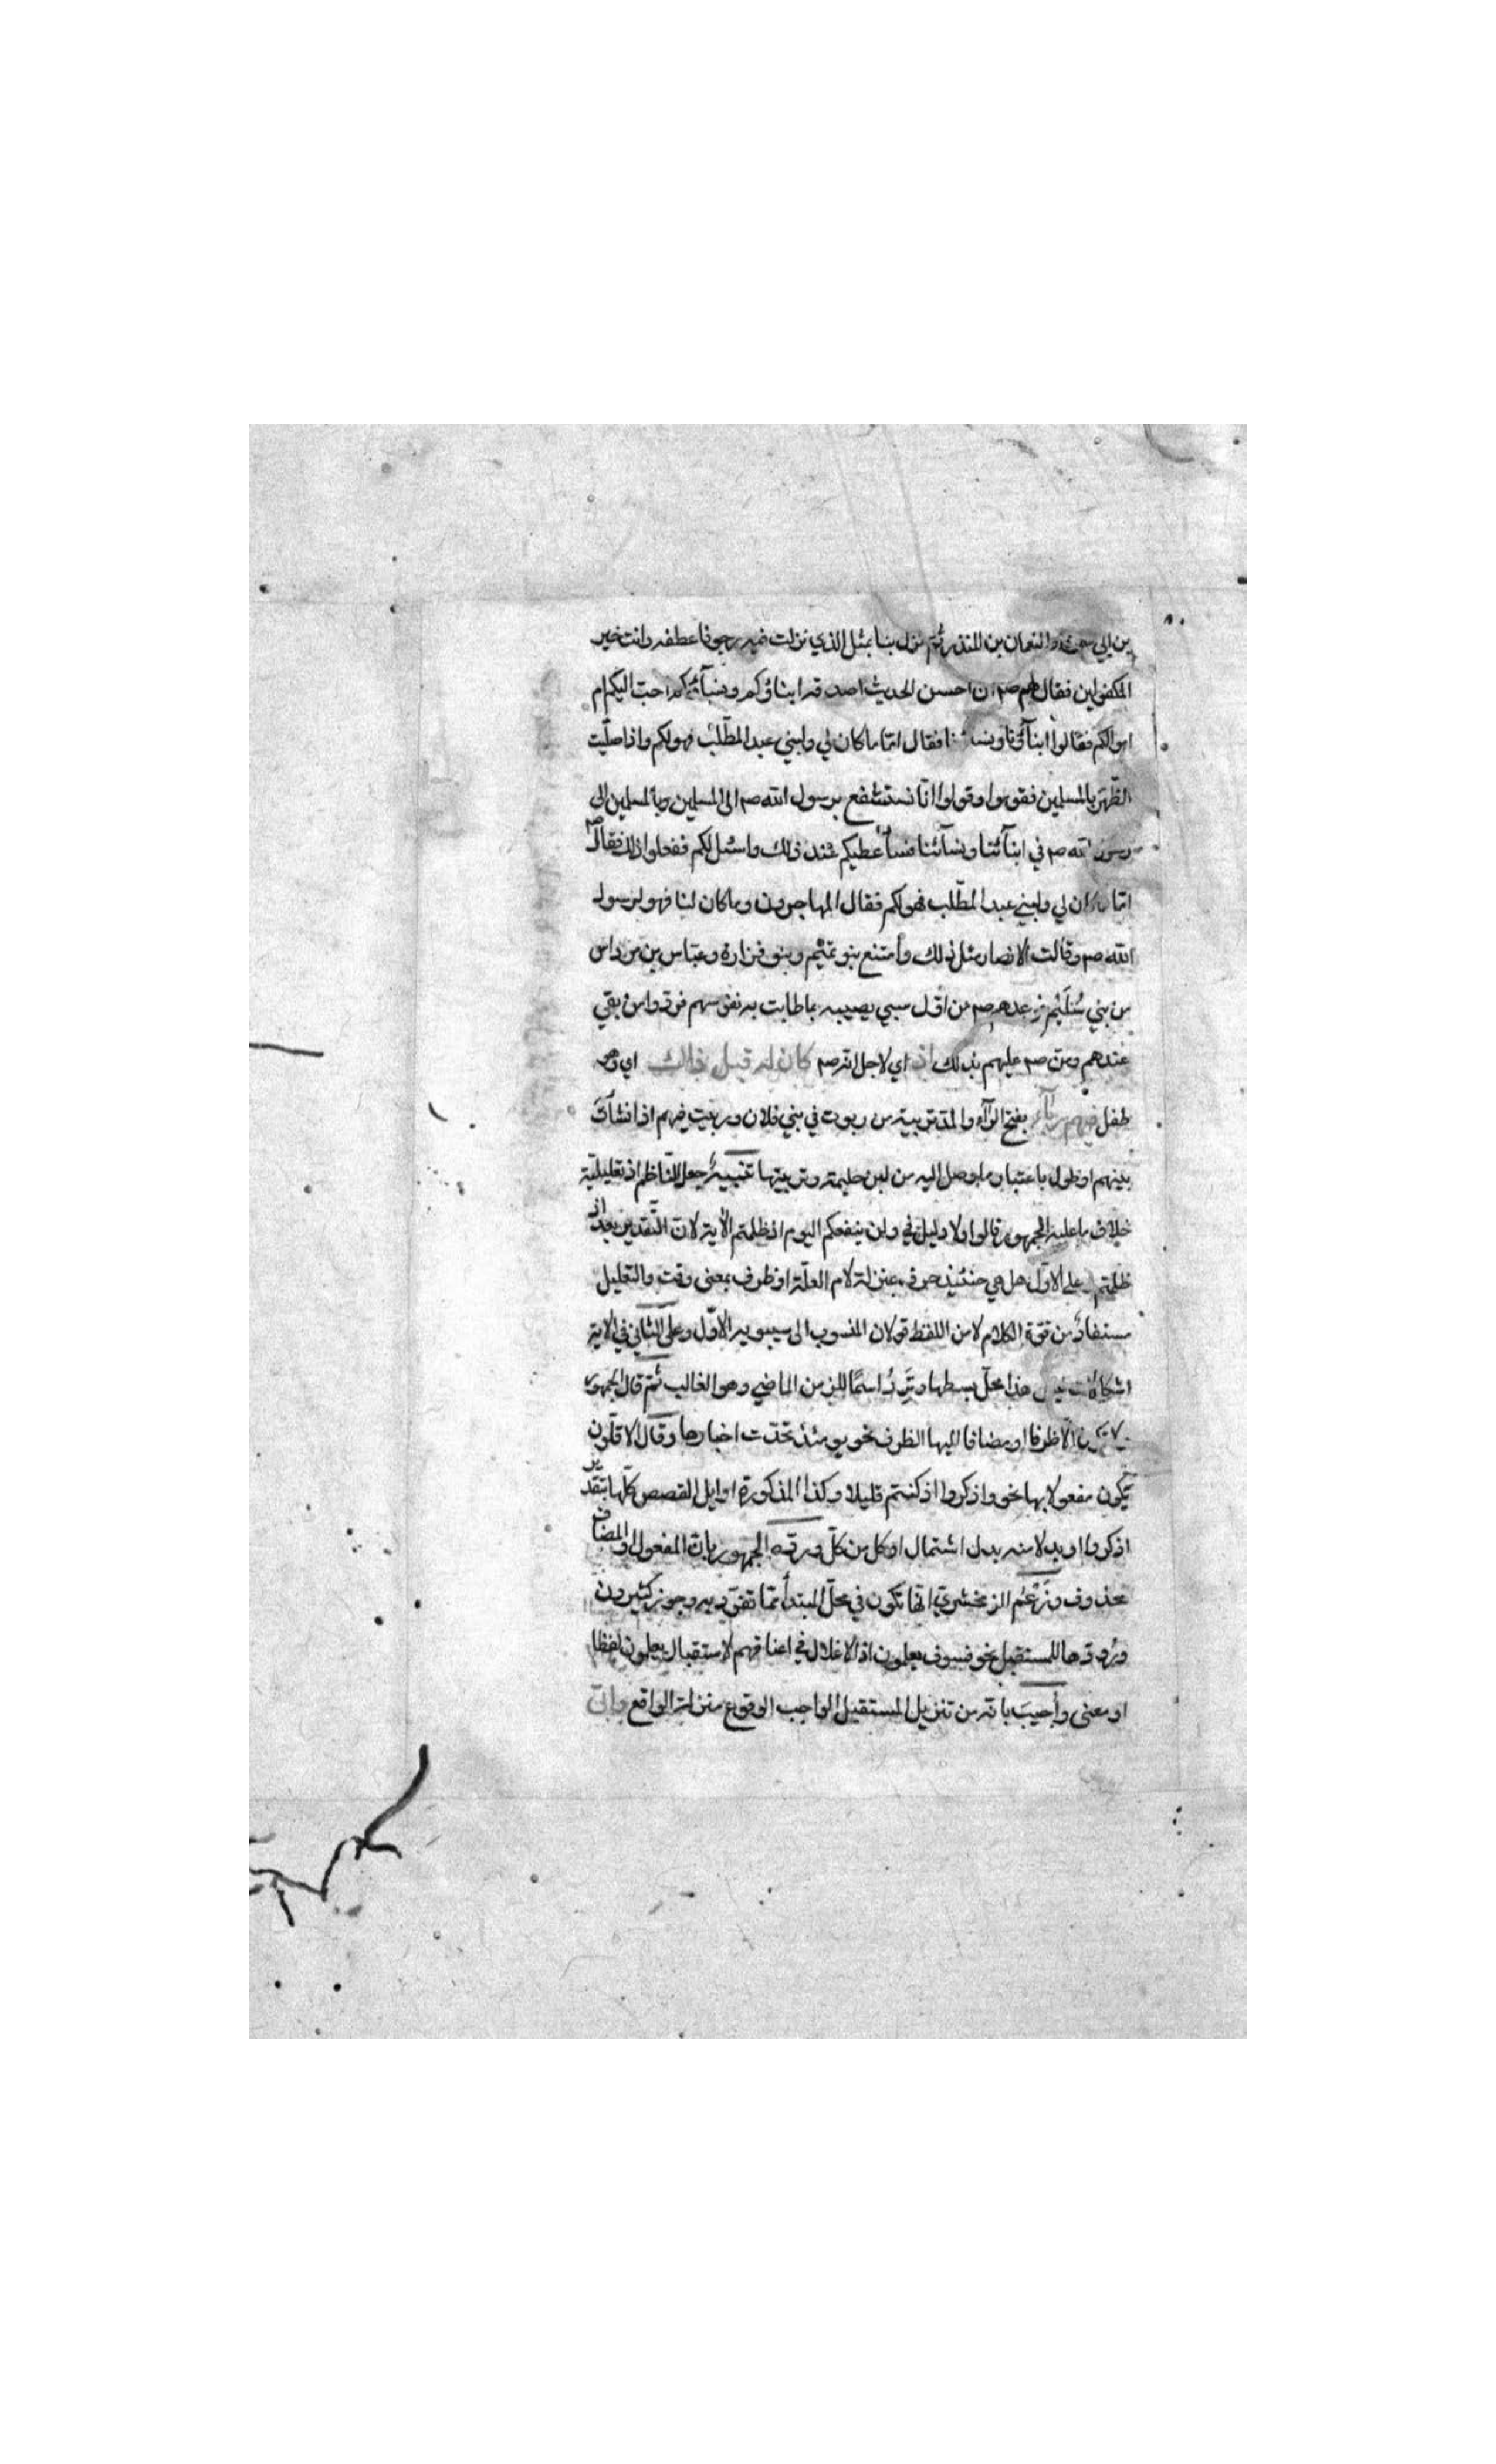 بن ابي والنعمان بن المنذر ثم نزل بنا بمثل الذي نزلت فيه رجونا عطفه وانت خير
المكفولين فقال لهم صم ان احسن الحديث اصدقه ابناؤكم ونساؤكم احب اليكم ام
اموالكم فقالوا ابناؤنا ونساؤنا فقال امّا ما كان لي ولبني عبد المطّلب فهو لكم واذا صلّيت
الظهر بالمسلمين فقوموا وقولوا انّا نستشفع برسول الله صم الى المسلمين وبالمسلمين الى
رسول الله صم في ابنآئنا ونسآئنا فسأعطيكم عند ذلك واسئل لكم ففعلوا ذلك فقال صم
امّا ما كان لي ولبني عبد المطّلب فهو لكم فقال المهاجرون وما كان لنا فهو لرسول
الله صم وقالت الانصار مثل ذلك وامتنع بنو تميم وبنو فزارة وعبّاس بن مرداس
من بني سُلَيْم فوعدهم صم من اوّل سبي يصيبه بما طابت به نفوسهم فردّوا من بقي
عندهم ومنّ صم عليهم بذلك اذ اي لاجل انّه صم كان له قبل ذلك اي وهو
طفل فيهم ربآء بفتح الرّآء والمدّ تربية من ربوت في بني فلان وربيت فيهم اذا نشأتَ
بينهم او طول باعتبار ما وصل اليه من لبن حليمة وتربيتها تنبيه جعل النّاظم اذ تعليليّة
خلاف ما عليه الجمهور قالوا ولا دليل في ولن ينفعكم اليوم اذ ظلمتم الأية لانّ التّقدير بعد اذ
ظلمتم وعلى الاوّل هل هي حينئذ حرف بمنزلة لام العلّة او ظرف بمعنى وقت والتعليل
مستفادٌ من قوّة الكلام لا من اللفظ قولان المنسوب الى سيبويه الاوّل وعلى الثّاني في الاية
اشكالات ليس هذا محلّ بسطها وتَرِدُ اسمًا للزمن الماضي وهو الغالب ثمّ قال الجمهور
لا تكون الّا ظرفا او مضافا اليها الظرف نحو يومئذ تحدّث اخبارها وقال الاقلّون
تكون مفعولا بها نحو واذكروا اذ كنتم قليلا وكذا المذكورة اوايل القصص كلّها بتقدير
اذكروا او بدلا منه بدل اشتمال او كل من كلّ وردّه الجمهور بانّ المفعول او المضاف
محذوف وزَعْم الزمخشريّ انّها تكون في محلّ المبتدأ ممّا تفرّد به وجوز كثيرون
ورودها للمستقبل نحو فسوف يعلمون اذ الاغلال في اعناقهم لاستقبال يعلمون لفظا
او معنى وأجيبَ بانّه من تنزيل المستقبل الواجب الوقوع منزلة الواقع واتى